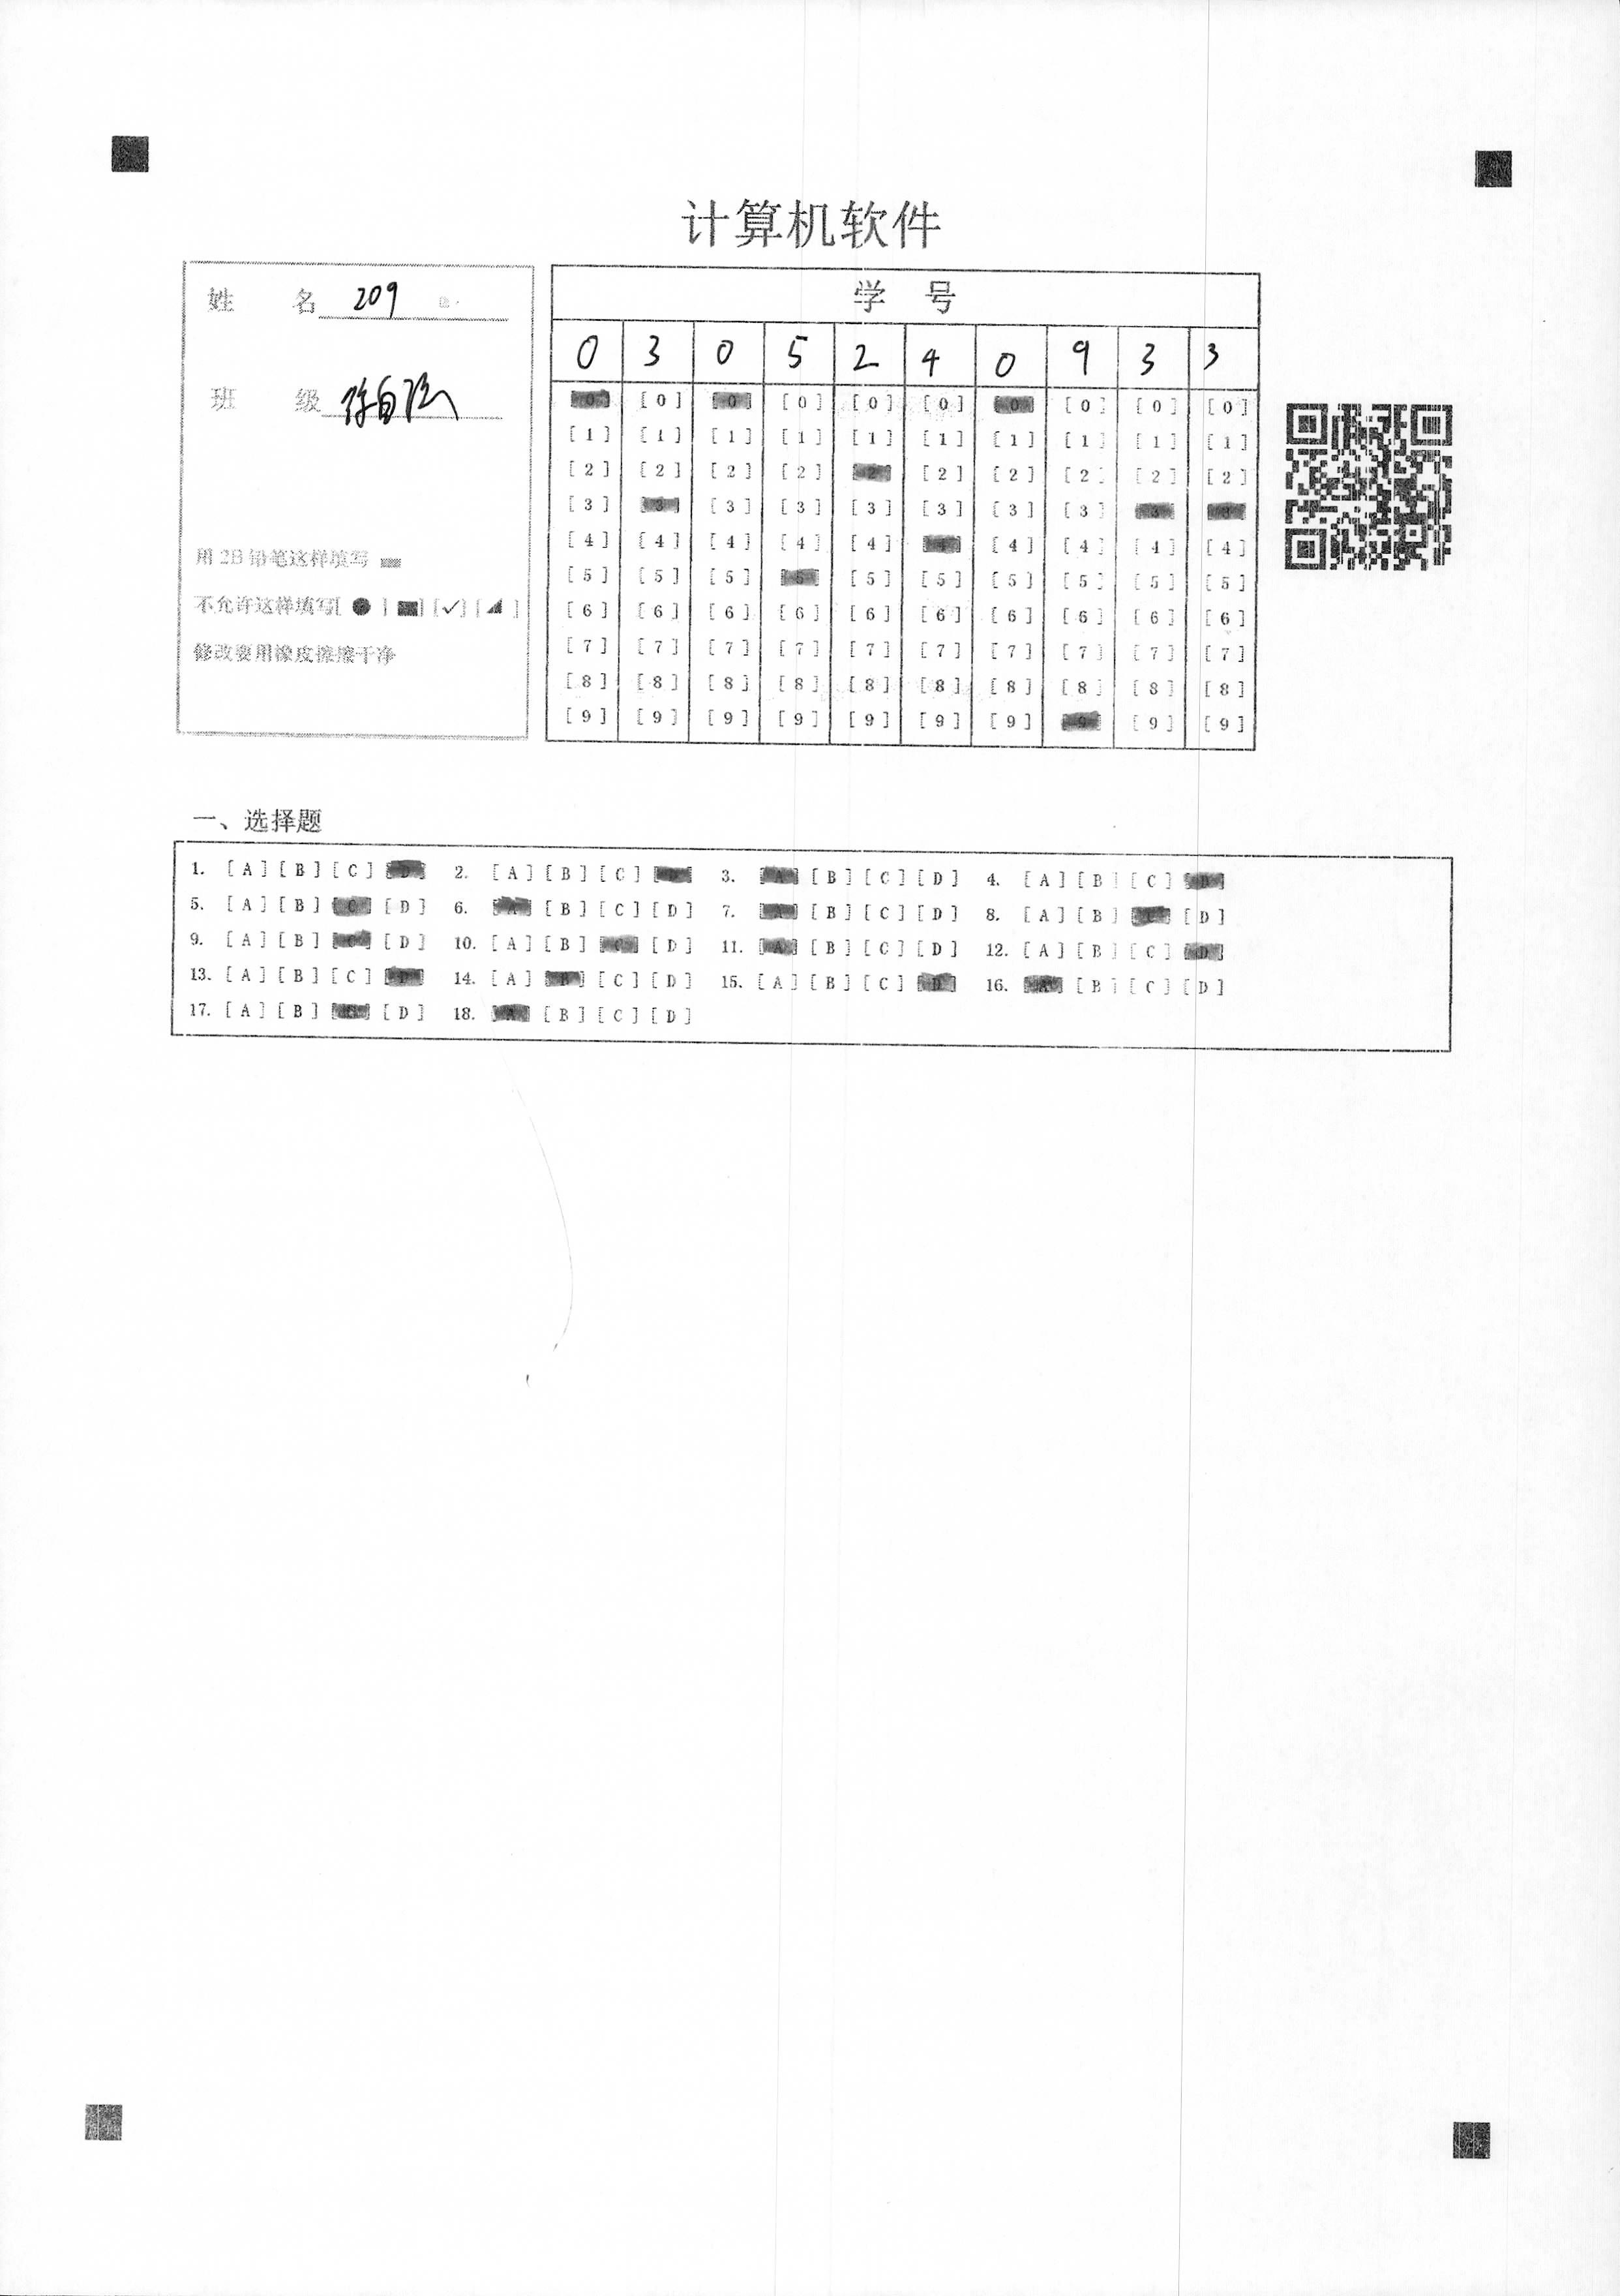 计算机软件
姓 名 209
班 级
用 2B 铅笔这样填写
不允许这样填写[ ● ] [■] [✓] [◢ ]
修改要用橡皮擦擦干净
学 号
0 3 0 5 2 4 0 9 3 3
[0] [0] [0] [0] [0] [0] [0] [0] [0] [0]
[1] [1] [1] [1] [1] [1] [1] [1] [1] [1]
[2] [2] [2] [2] [2] [2] [2] [2] [2] [2]
[3] [3] [3] [3] [3] [3] [3] [3] [3] [3]
[4] [4] [4] [4] [4] [4] [4] [4] [4] [4]
[5] [5] [5] [5] [5] [5] [5] [5] [5] [5]
[6] [6] [6] [6] [6] [6] [6] [6] [6] [6]
[7] [7] [7] [7] [7] [7] [7] [7] [7] [7]
[8] [8] [8] [8] [8] [8] [8] [8] [8] [8]
[9] [9] [9] [9] [9] [9] [9] [9] [9] [9]
一、选择题
1. [A] [B] [C] [D] 2. [A] [B] [C] [D] 3. [A] [B] [C] [D] 4. [A] [B] [C] [D]
5. [A] [B] [C] [D] 6. [A] [B] [C] [D] 7. [A] [B] [C] [D] 8. [A] [B] [C] [D]
9. [A] [B] [C] [D] 10. [A] [B] [C] [D] 11. [A] [B] [C] [D] 12. [A] [B] [C] [D]
13. [A] [B] [C] [D] 14. [A] [B] [C] [D] 15. [A] [B] [C] [D] 16. [A] [B] [C] [D]
17. [A] [B] [C] [D] 18. [A] [B] [C] [D]